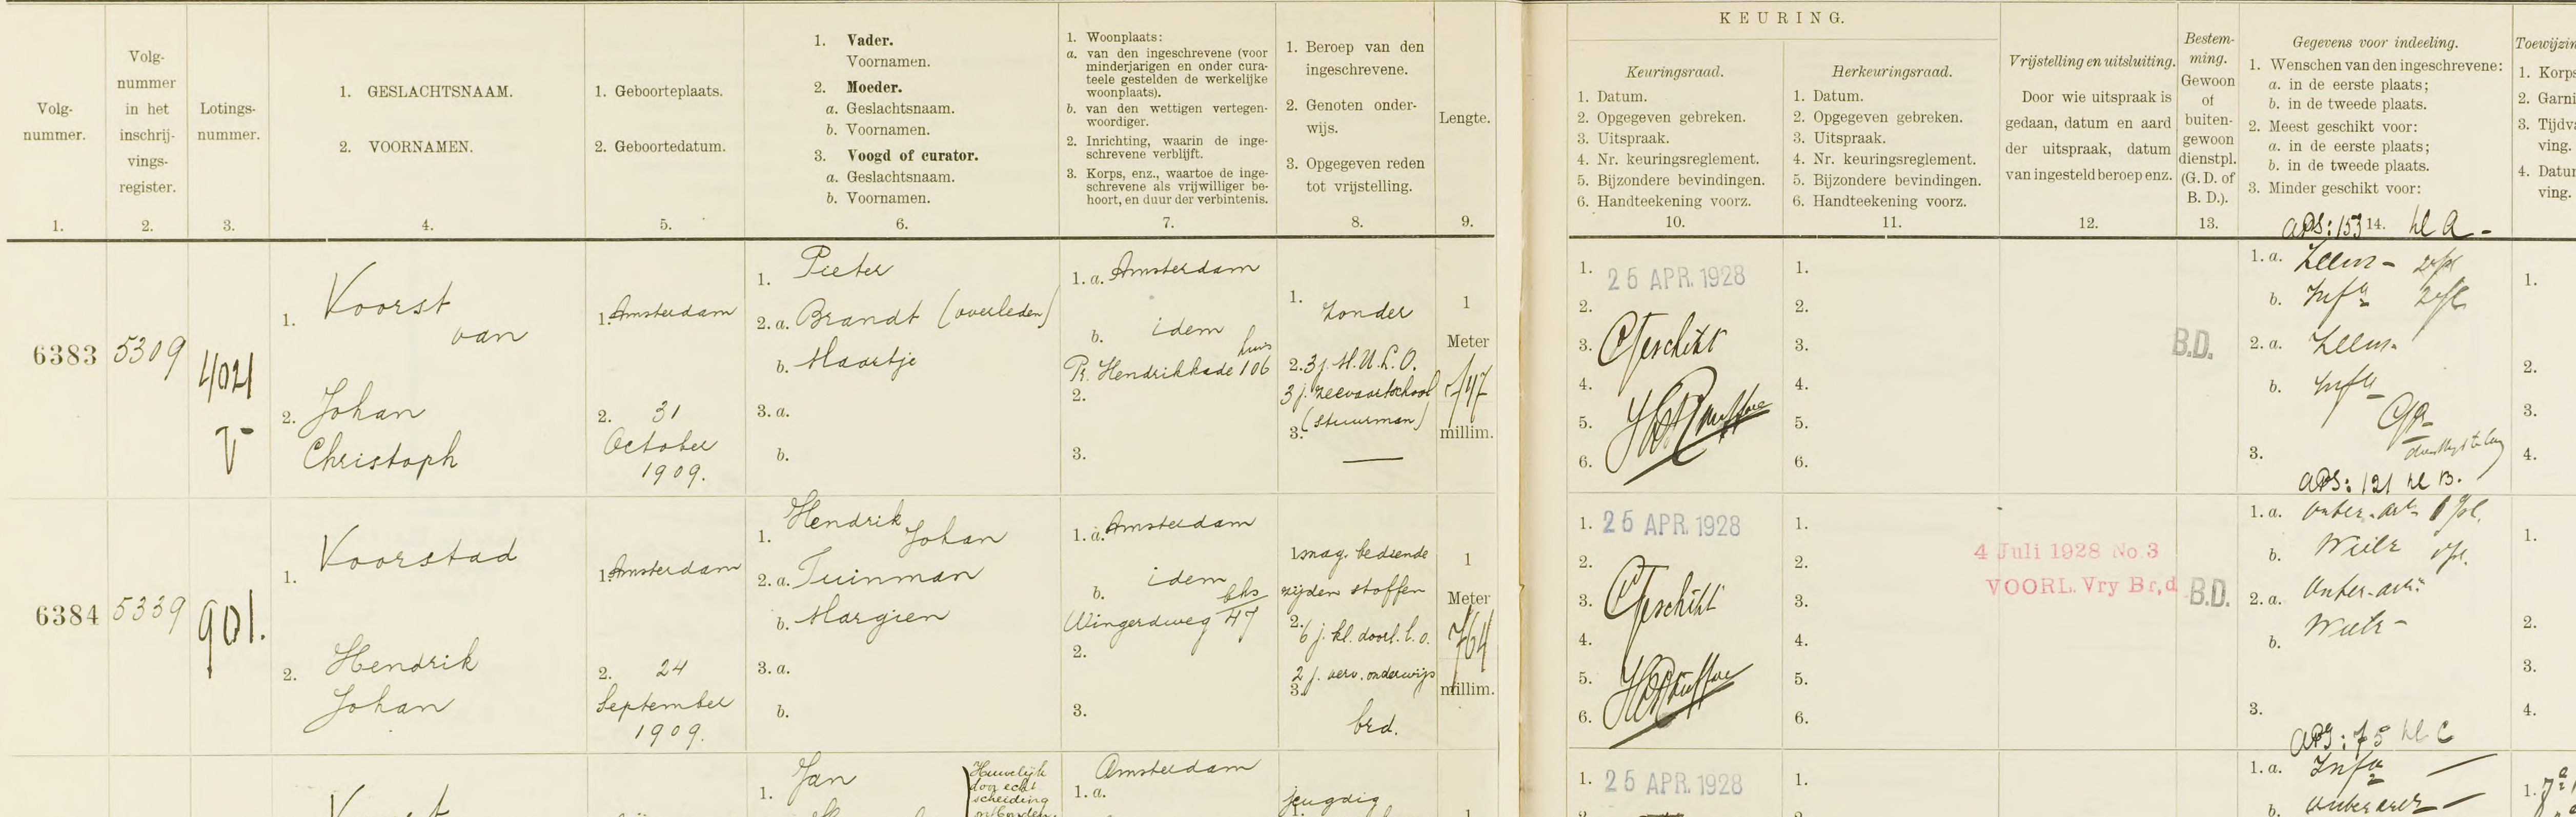 Volg-
nummer.
1.
Volg-
nummer
in het
inschrij-
vings-
register.
2.
Lotings-
nummer.
3.
1. GESLACHTSNAAM.
2. VOORNAMEN.
4.
1. Geboorteplaats.
2. Geboortedatum.
5.
1. Vader.
Voornamen.
2. Moeder.
a. Geslachtsnaam.
b. Voornamen.
3. Voogd of curator.
a. Geslachtsnaam.
b. Voornamen.
6.
1. Woonplaats:
a. van den ingeschrevene (voor
minderjarigen en onder cura-
teele gestelden de werkelijke
woonplaats).
b. van den wettigen vertegen-
woordiger.
2. Inrichting, waarin de inge-
schrevene verblijft.
3. Korps, enz., waartoe de inge-
schrevene als vrijwilliger be-
hoort, en duur der verbintenis.
7.
1. Beroep van den
ingeschrevene.
2. Genoten onder-
wijs.
3. Opgegeven reden
tot vrijstelling.
8.
Lengte.
9.
KEURING.
Keuringsraad.
1. Datum.
2. Opgegeven gebreken.
3. Uitspraak.
4. Nr. keuringsreglement.
5. Bijzondere bevindingen.
6. Handteekening voorz.
10.
Herkeuringsraad.
1. Datum.
2. Opgegeven gebreken.
3. Uitspraak.
4. Nr. keuringsreglement.
5. Bijzondere bevindingen.
6. Handteekening voorz.
11.
Vrijstelling en uitsluiting.
Door wie uitspraak is
gedaan, datum en aard
der uitspraak, datum
van ingesteld beroep enz.
12.
Bestem-
ming.
Gewoon
of
buiten-
gewoon
dienstpl.
(G. D. of
B. D.).
13.
Gegevens voor indeeling.
1. Wenschen van den ingeschrevene:
a. in de eerste plaats;
b. in de tweede plaats.
2. Meest geschikt voor:
a. in de eerste plaats;
b. in de tweede plaats.
3. Minder geschikt voor:
14.
Toewijzin
1. Korps
2. Garni
3. Tijdv
ving.
4. Datum
ving.
6383
5309
404
V
1. Voorst
van
2. Johan
Christoph
1. Amsterdam
2. 31
October
1909.
1. Pieter
2. a. Brandt (overleden)
b. Maartje
3. a.
b.
1. a. Amsterdam
b. idem
huis
Pr. Hendrikkade 106
2.
3.
1. Zonder
2. 3 j. M.U.L.O.
3 j. zeevaartschool
(stuurman)
3. —
1
Meter
747
millim.
1. 25 APR. 1928
2.
3. Geschikt
4.
5.
6.
1.
2.
3.
4.
5.
6.
B.D.
APS: 153 kl A -
1. a. Zeem -
b. Infie
2. a. Zeem.
b. Infie
3.
1.
2.
3.
4.
6384
5339
901.
1. Voorstad
2. Hendrik
Johan
1. Amsterdam
2. 24
September
1909.
1. Hendrik
Johan
2. a. Tuinman
b. Margien
3. a.
b.
1. a. Amsterdam
b. idem
bhs
Wingerdweg 47
2.
3.
1. mag. bediende
zijden stoffen
2. 6 j. kl. doorl. l. o.
2 j. verv. onderwijs
3. brd.
1
Meter
764
millim.
1. 25 APR. 1928
2.
3. Geschikt
4.
5.
6.
1.
2.
3.
4.
5.
6.
4 Juli 1928 No. 3
VOORL. Vry Br,d
B.D.
APS: 121 kl B.
1. a.
b. Wielr
2. a.
b. Wielr -
3.
1.
2.
3.
4.
1. Jan
Huwelijk
door echt
scheiding
ontbonden
1. a. Amsterdam
jeugdig
1.
1
1. 25 APR. 1928
2.
1.
2.
APS: 75 kl C
1. a. Infie —
b.
1.